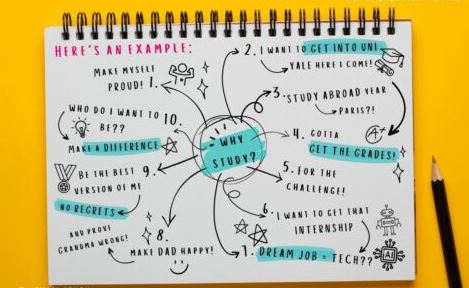 HERE'S AN EXAMPLE:
MAKE MYSELF
PROUD! 1.
2. I WANT TO GET INTO UNI
YALE HERE I COME!
3. STUDY ABROAD YEAR
PARIS?!
4. GOTTA
A+
GET THE GRADES!
5. FOR THE
CHALLENGE!
6. I WANT TO GET THAT
INTERNSHIP
7. DREAM JOB = TECH??
AI
8.
MAKE DAD HAPPY!
AND PROVE
GRANDMA WRONG!
9. BE THE BEST
VERSION OF ME
NO REGRETS
WHO DO I WANT TO 10.
BE??
MAKE A DIFFERENCE
WHY
STUDY?